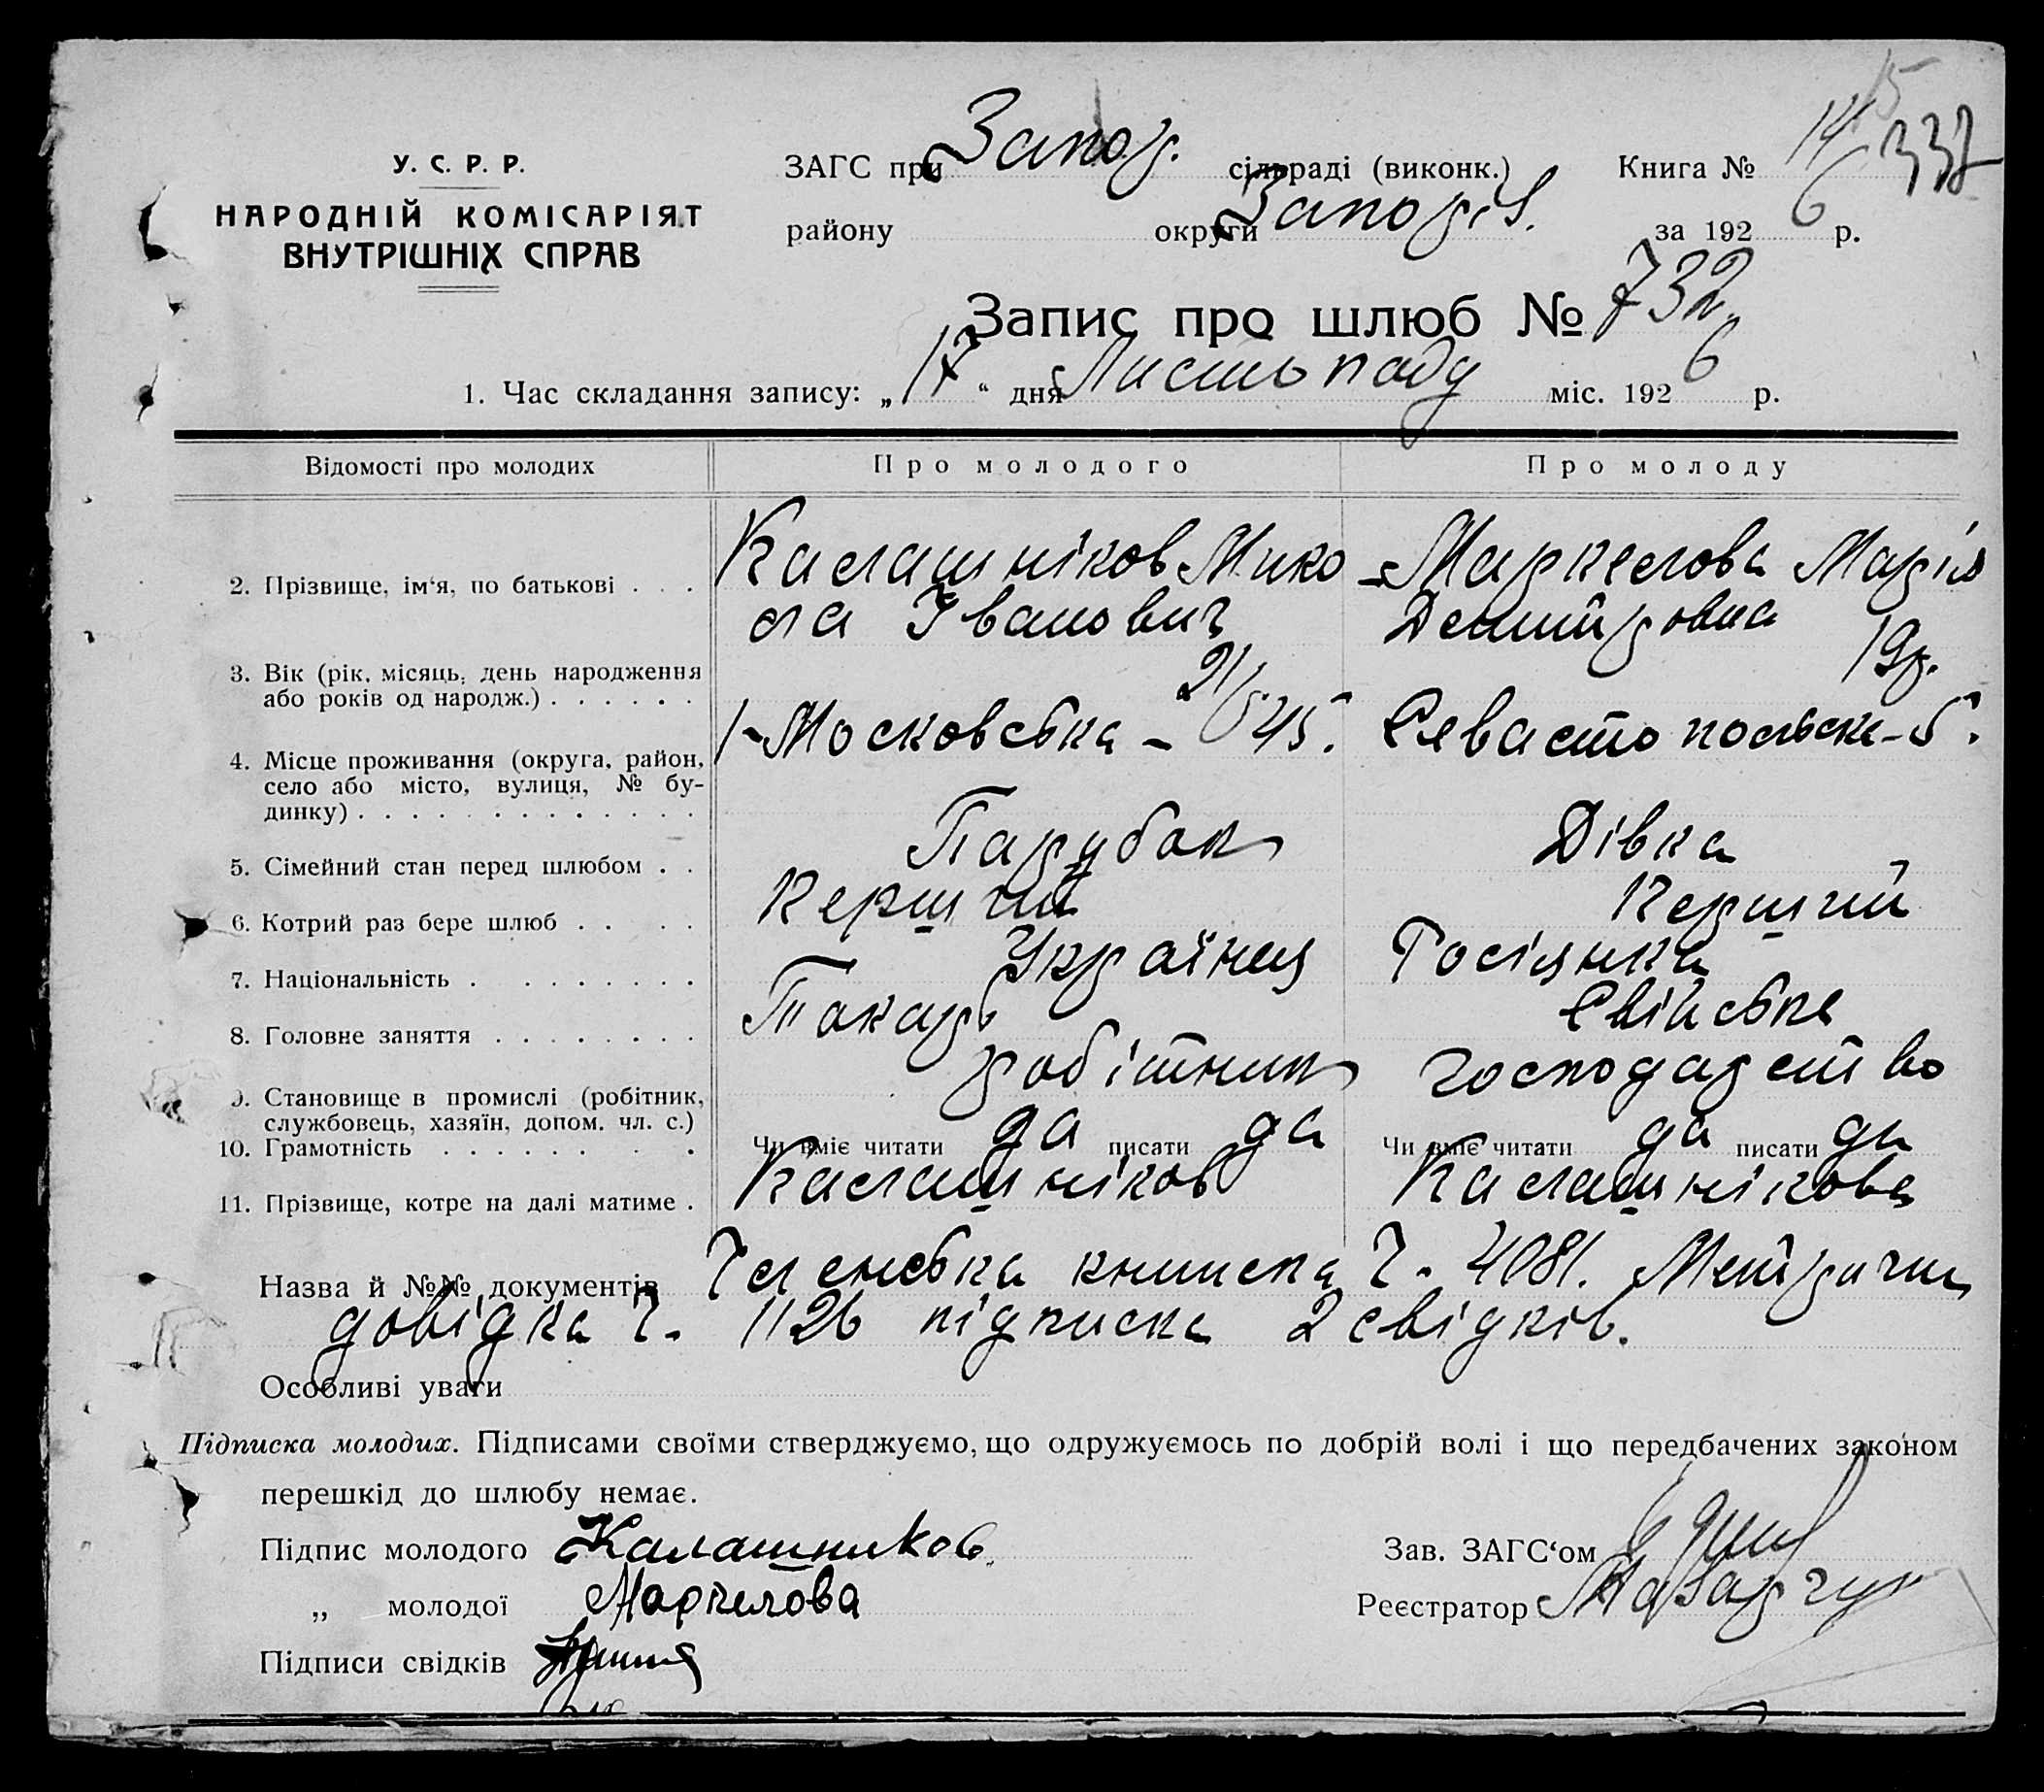 У. С. Р. Р.
НАРОДНІЙ КОМІСАРІЯТ
ВНУТРІШНІХ СПРАВ
ЗАГС при Запор. сільраді (виконк.) Книга № 14 337
району округи Запоріз. за 1926 р.
Запис про шлюб № 732
1. Час складання запису: „17“ дня Листопаду міс. 1926 р.
Відомості про молодих Про молодого Про молоду
2. Прізвище, ім‘я, по батькові . . . Калашніков Мико Маркелова Марія
ла Іванович Демитровна
3. Вік (рік, місяць, день народження 21 19р.
або років од народж.) . . . . . .
4. Місце проживання (округа, район, 1-Московська - 45. Севастопольск-5.
село або місто, вулиця, № бу-
динку) . . . . . . . . . . . . .
5. Сімейний стан перед шлюбом . . Парубок Дівка
6. Котрий раз бере шлюб . . . . Перший Перший
7. Національність . . . . . . . . Українец Росіянка
8. Головне заняття . . . . . . . . Токарь Свійське
9. Становище в промислі (робітник, робітник господарство
службовець, хазяїн, допом. чл. с.)
10. Грамотність . . . . . . . . Чи вміє читати да писати да Чи вміє читати да писати да
11. Прізвище, котре на далі матиме . Калашніков Калашнікова
Назва й №№ документів Членська книжка ч. 4081. Метрична
довідка ч. 1126 підписка 2 свідків.
Особливі уваги
Підписка молодих. Підписами своїми стверджуємо, що одружуємось по добрій волі і що передбачених законом
перешкід до шлюбу немає.
Підпис молодого Калашников Зав. ЗАГС‘ом
„ молодої Маркелова Реєстратор
Підписи свідків